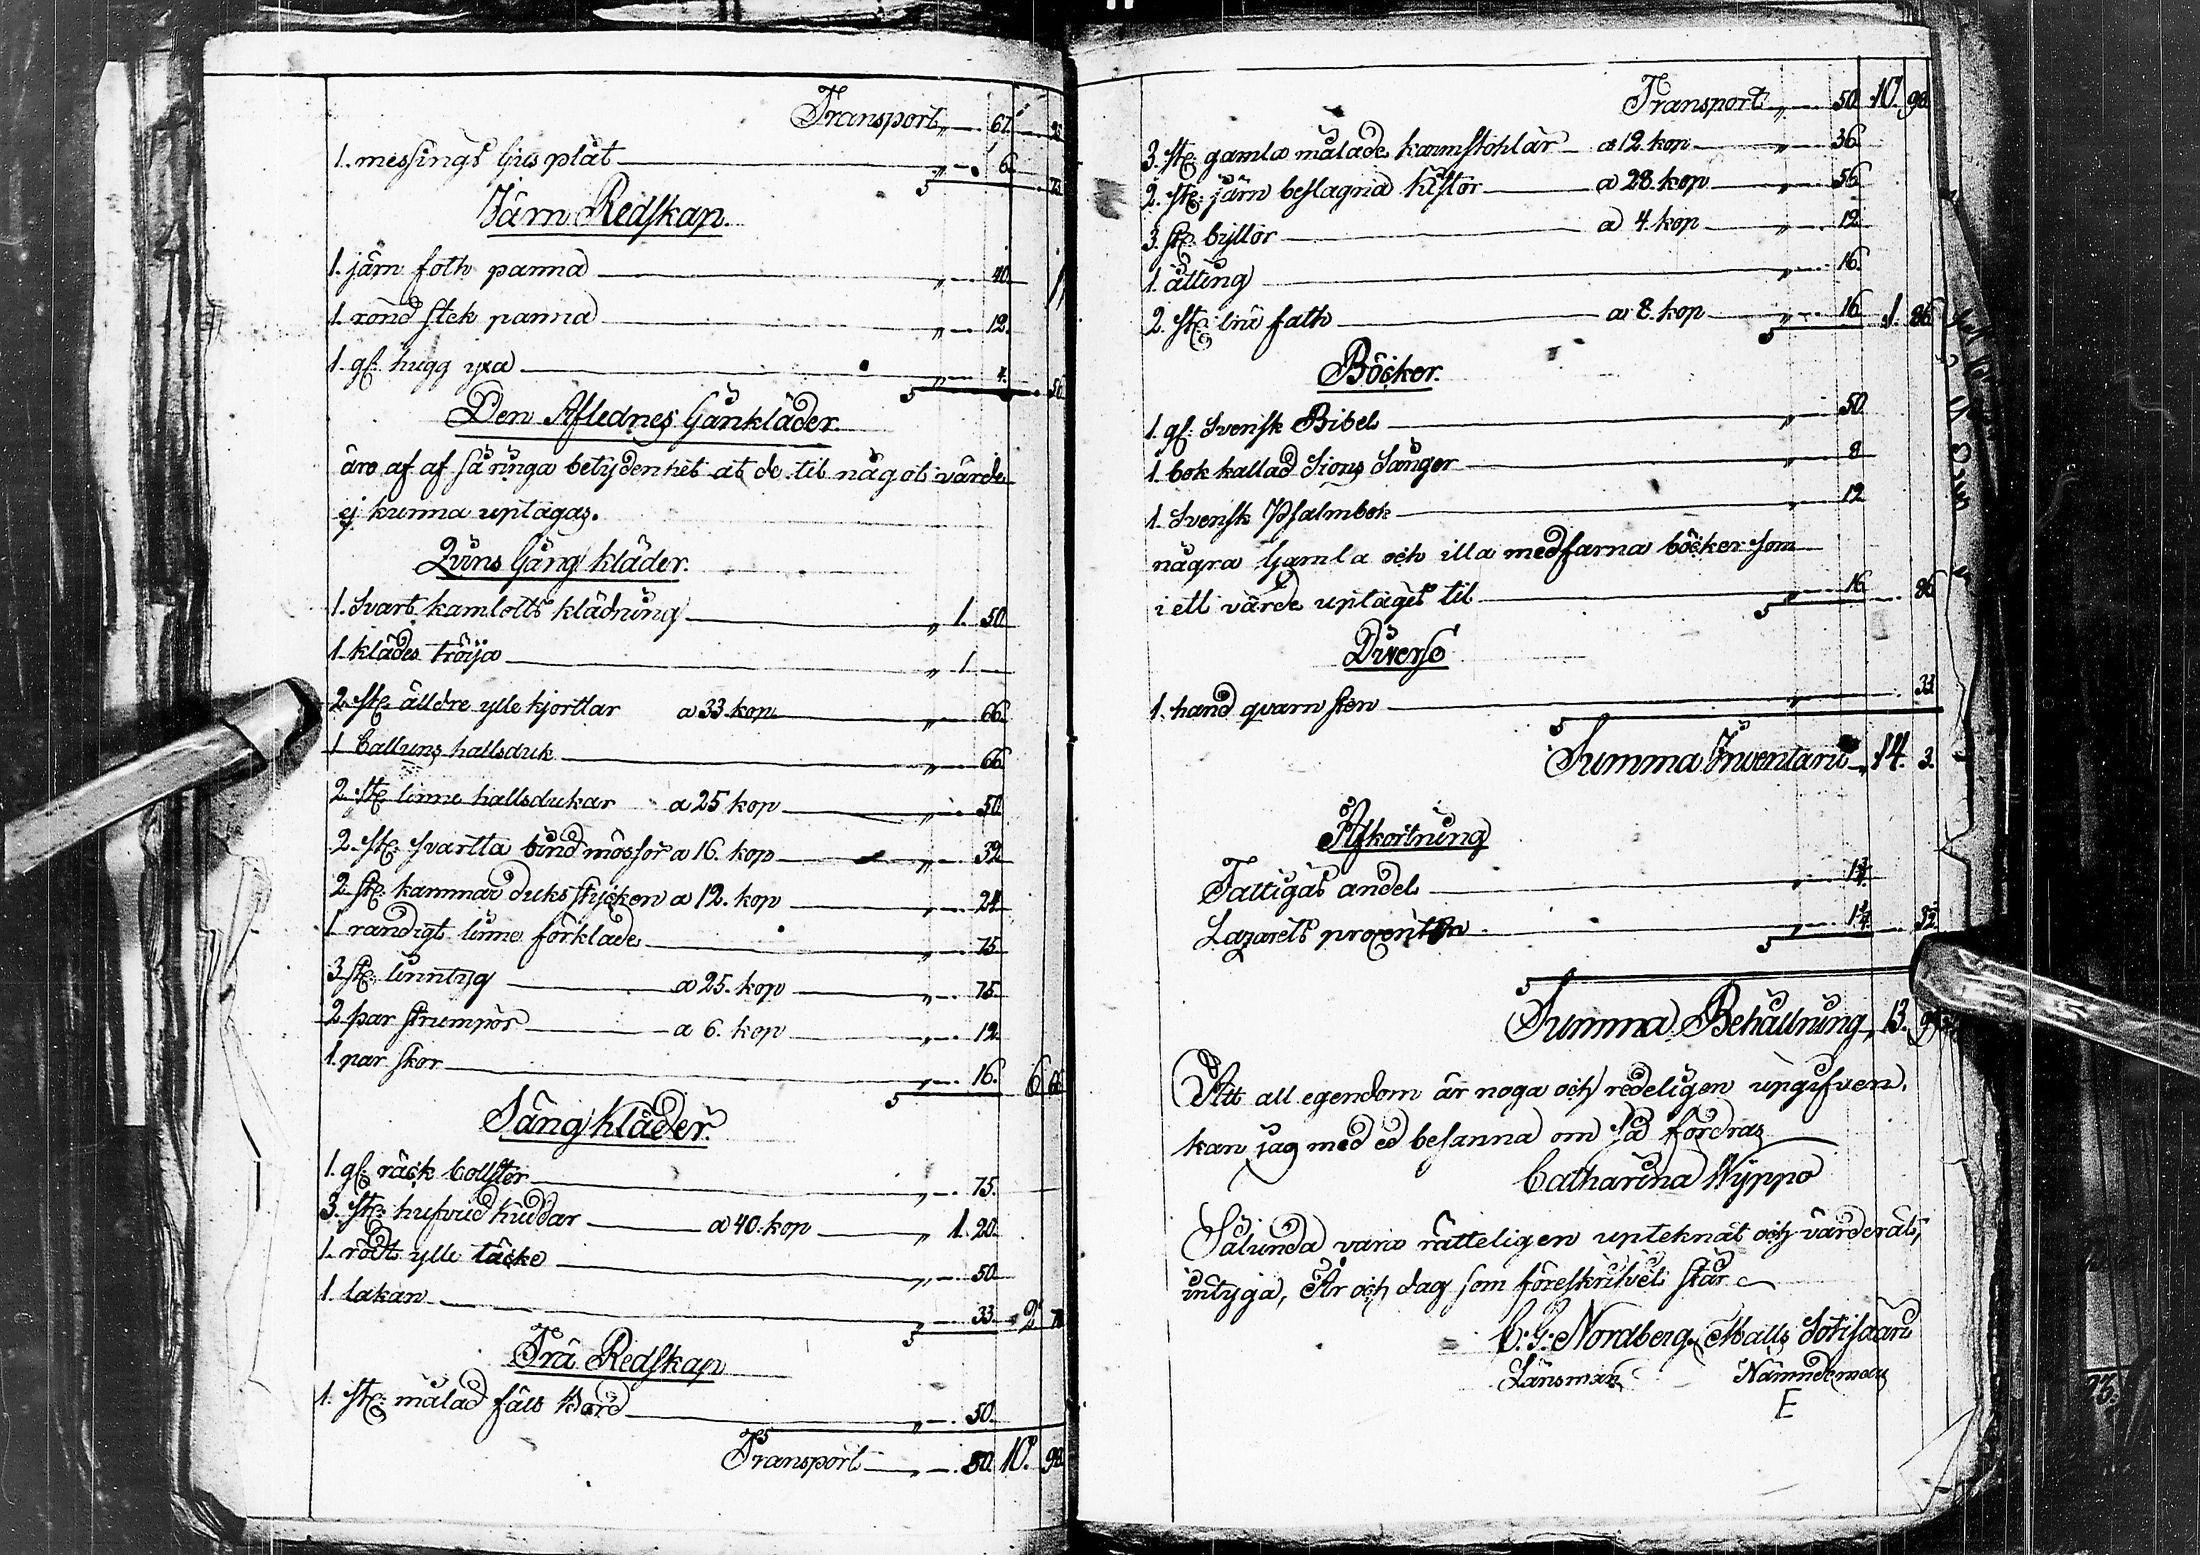 Transport „ — 67.
1. messings ljus plåt „ — 6.
Järn Redskap.
1. järn foth panna „ — 40.
1. rönd stek panna „ — 12.
1. gl: hugg yxa „ — 4.
Den Aflednes Gånkläder.
äro af af så ringa betydenhet at de til något värde
ej kunna uptagas.
Qvins Gång kläder.
1. Svart kamlotts klädning „ 1. 50.
1. klädes tröija „ 1 —
2. st: älldre ylle kjortlar a 33. kop „ — 66.
1 Calluns hallsduk „ — 66.
2. st: linne hallsdukar a 25 kop „ — 50.
2. st: svartta bind mössor a 16. kop „ — 32
2. st: kammar duks stycken a 12. kop „ — 24.
1 randigt linne förkläde „ — 75.
3. st: linntyg a 25. kop „ — 75.
2. par strumpor a 6. kop „ — 12.
1. par skor „ — 16. 6 66
Sängkläder.
1. gl: räck bollster „ — 75.
3. st: hufvud kuddar a 40. kop „ 1. 20.
1. rödt ylle täcke „ — 50.
1. lakan „ — 33. 2 78
Trä Redskap
1. st: målad fäll bord „ — 50.
Transport „ — 50. 10. 98
Transport „ — 50. 10. 98.
3. st: gamla målade karmstohlar a 12. kop „ — 36.
2. st: järn beslagna kistor a 28. kop „ — 56.
3. st: byttor a 4. kop „ — 12.
1. åtting „ — 16.
2. st: lnä fath a 8. kop „ — 16 1. 36
Böcker.
1. gl: Svensk Bibel „ — 50.
1. bok kallad Sions Sånger „ — 8
1. Svensk Psalmbok „ — 12
några Gamla och illa medfarna böcker som
i ett värde uptagit til „ — 16 — 86
Diverse
1. hand qvarn sten „ — 33
Summa Inventarii „ 14. 3.
Afkortning
Fattigas andel
Lazarets procenten
Summa Behållning, 13.
Att all egendom är noga och redeligen upgifven,
kan jag med ed besanna om så fordras
Catharina Nyppo
Sålunda vara rätteligen upteknat och värderat,
intyga, År och dag som föreskrifvet står
C: G: Nordberg Matts Sotisaari
Länsman Nämndeman
E